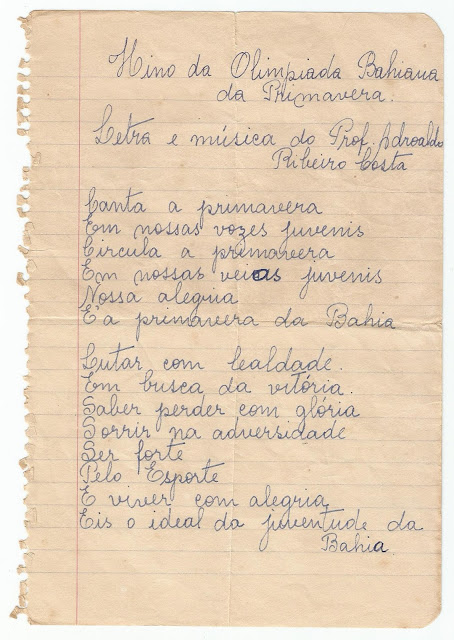 Hino da Olimpiada Bahiana
da Primavera.
Letra e música do Prof. Adroaldo
Ribeiro Costa
Canta a primavera
Em nossas vozes juvenis
Circula a primavera
Em nossas veias juvenis
Nossa alegria
E'a primavera da Bahia
Lutar com lealdade.
Em busca da vitória.
Saber perder com glória
Sorrir na adversidade
Ser forte
Pelo Esporte
E viver com alegria
Eis o ideal da juventude da
Bahia.